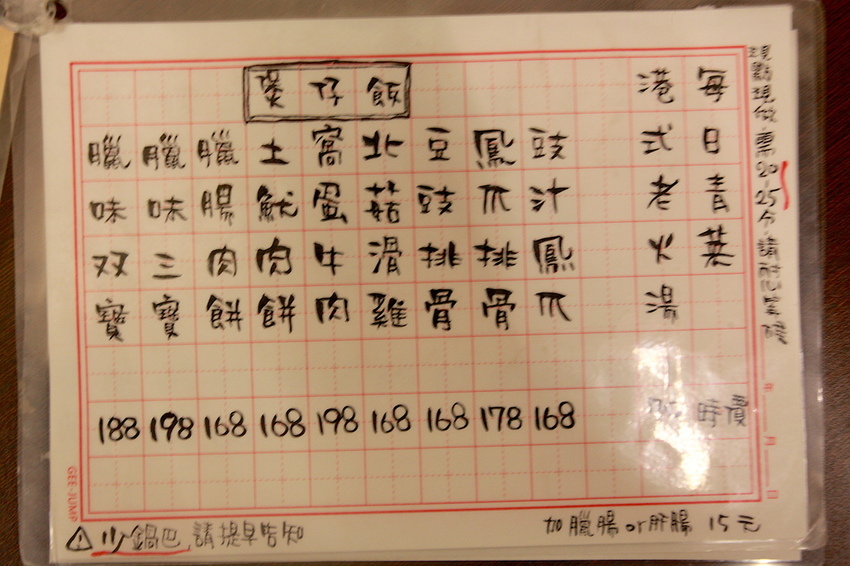 現點現做 需20~25分,請耐心等候
每日青菜 時價
港式老火湯
煲仔飯
豉汁鳳爪 168
鳳爪排骨 178
豆豉排骨 168
北菇滑雞 168
窩蛋牛肉 198
土魷肉餅 168
臘腸肉餅 168
臘味三寶 198
臘味双寶 188
年 月 日
GEE-JUMP
加臘腸or肝腸 15元
少鍋巴,請提早告知